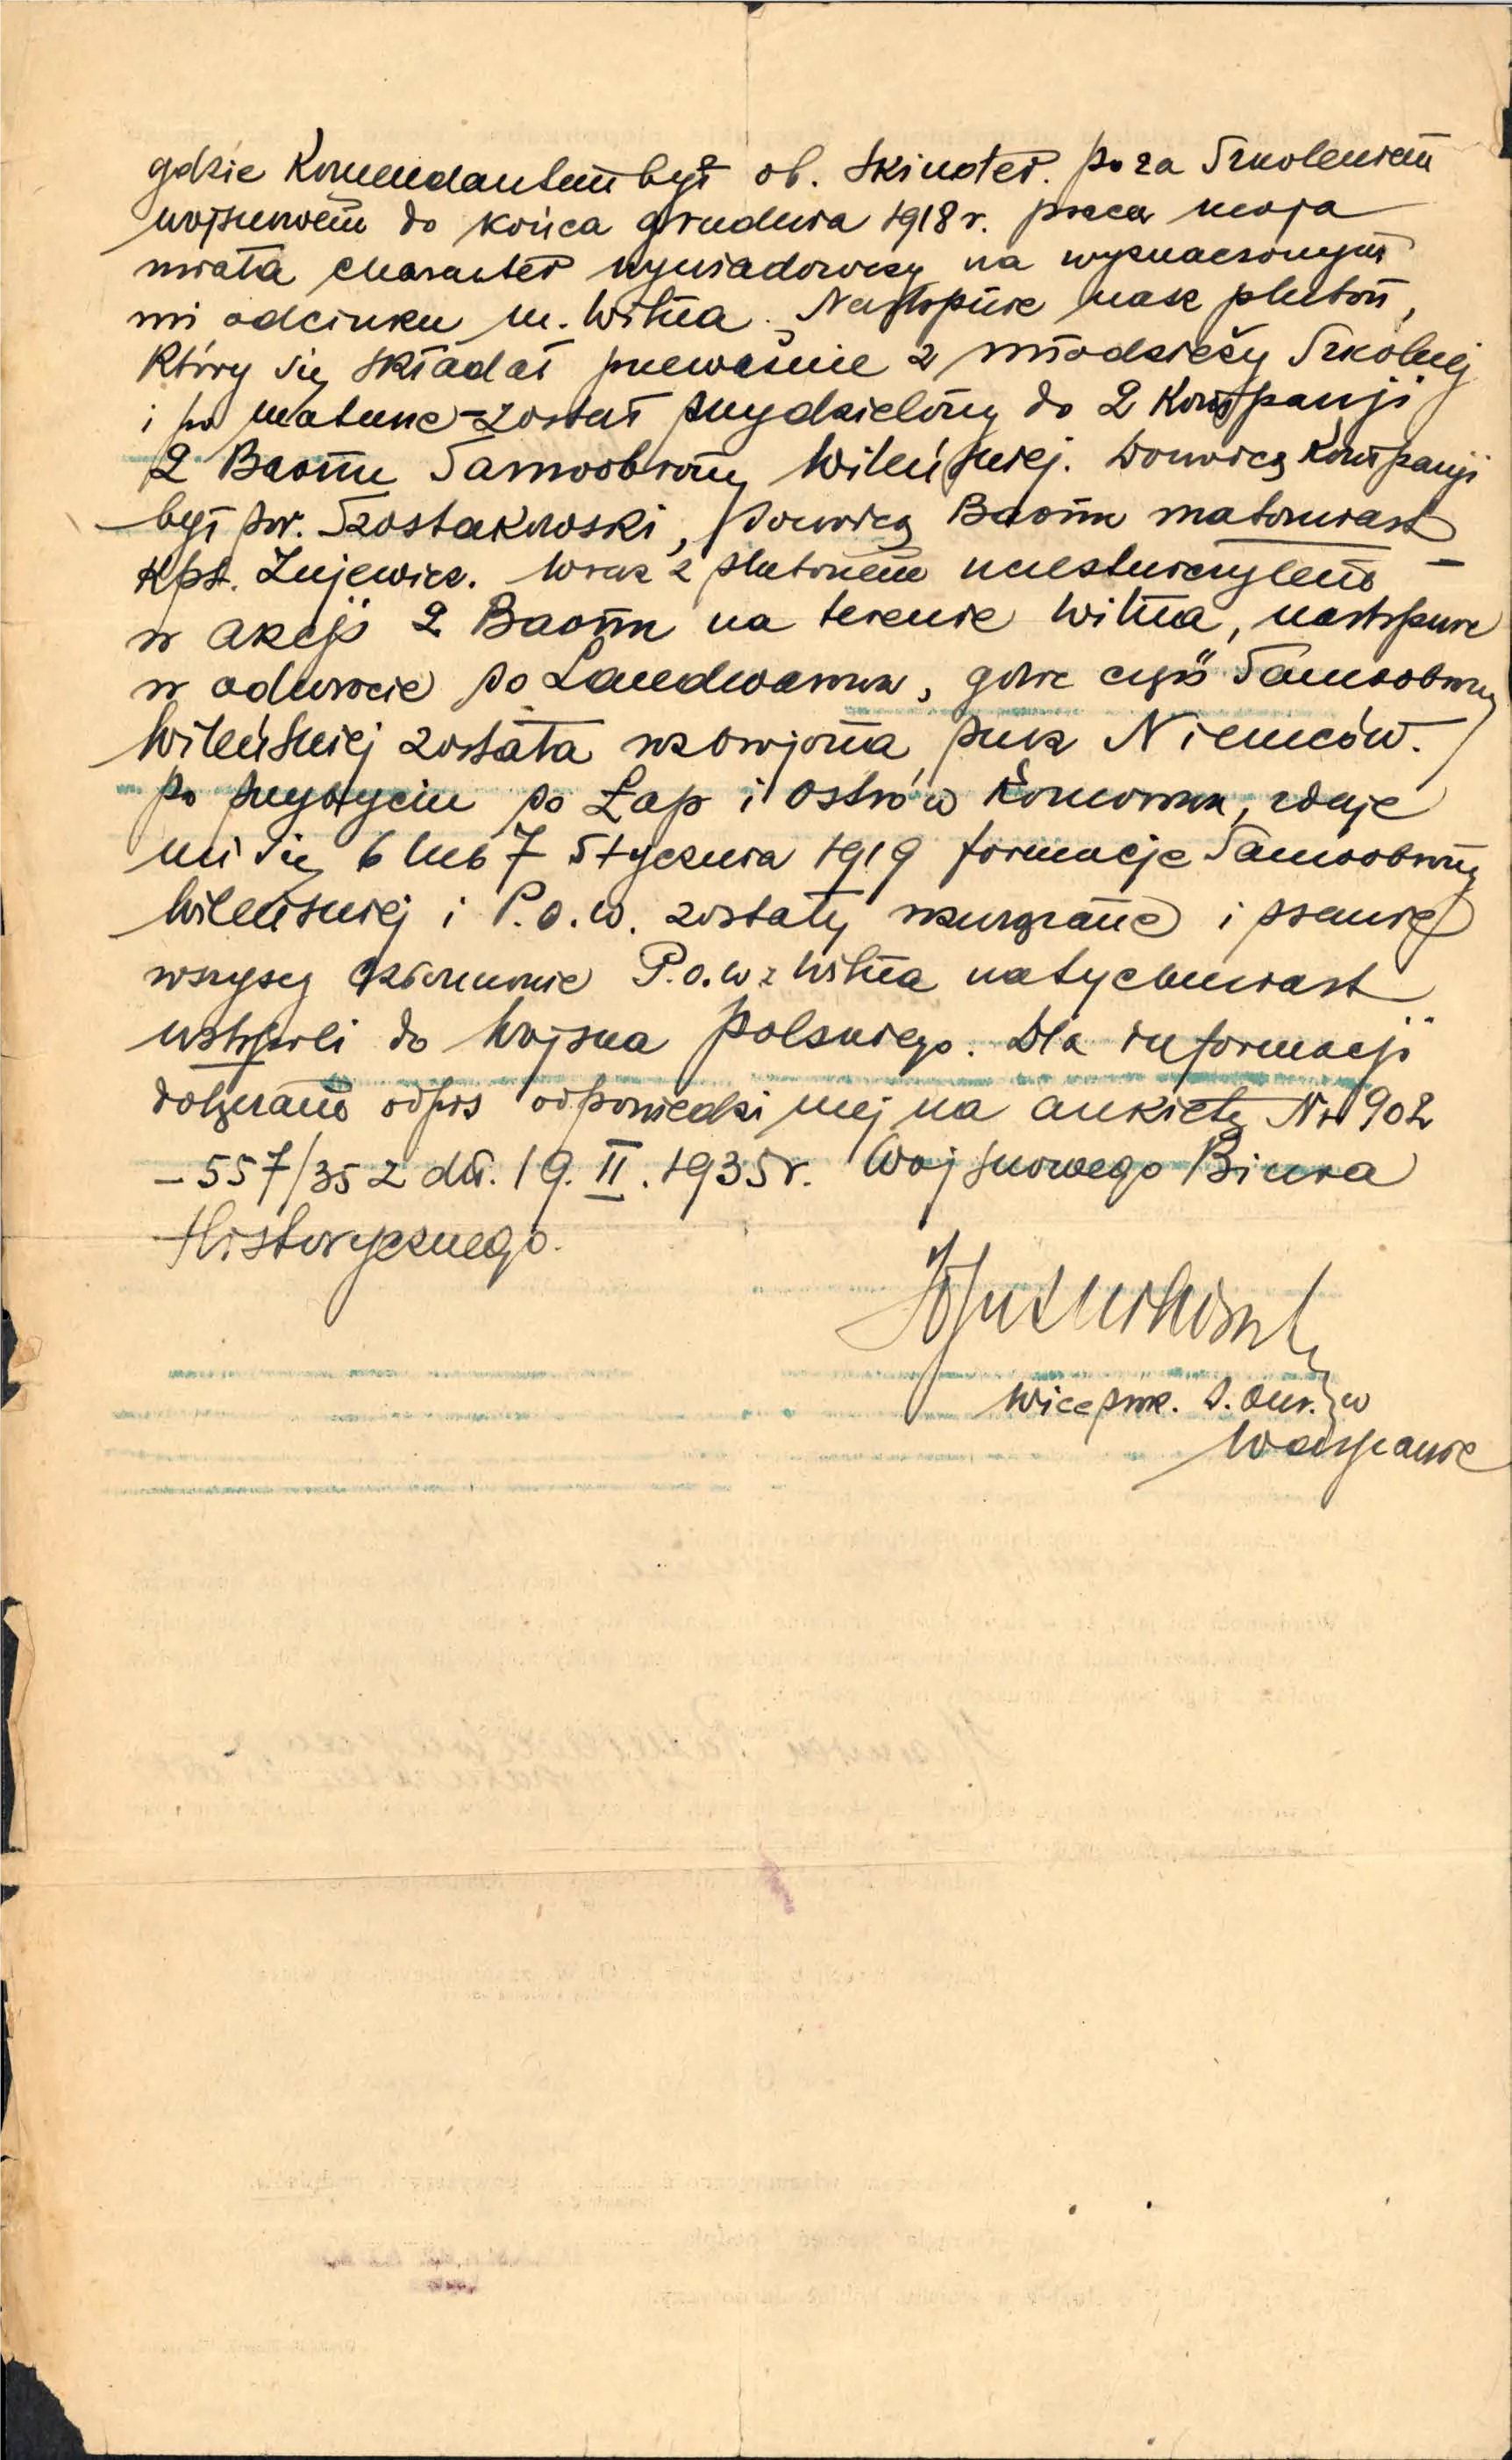 gdzie Komendantem był ob. Skinder. poza Szkoleniem
wojskowem do końca grudnia 1918 r. praca moja
miała charakter wywiadowczy na wyznaczonym
mi odcinku m. Wilna. Następnie nasz pluton,
który się składał przeważnie z młodzieży Szkolnej
i po maturze – został przydzielony do 2 Kompanji
2 Baonu Samoobrony Wileńskiej. Dowódcą Kompanji
był por. Szostakowski, Dowódcą Baonu natomiast
Kpt. Zujewicz. Wraz z plutonem uczestniczyłem –
w akcji 2 Baonu na terenie Wilna, następnie
w odwrocie do Landwarowa, gdzie część Samoobrony
Wileńskiej została rozbrojona przez Niemców.
Po przybyciu do Łap i Ostrów Komorowa, zdaje
mi się 6 lub 7 Stycznia 1919 formacje Samoobrony
Wileńskiej i P.O.W. zostały rozwiązane i prawie
wszyscy członkowie P.O.W z Wilna natychmiast
wstąpili do Wojska Polskiego. Dla informacji
dołączam odpis odpowiedzi mej na ankietę Nr 902
– 557/35 z dn. 19. II. 1935 r. Wojskowego Biura
Historycznego.
Wiceprok. S. Okr. w
Warszawie